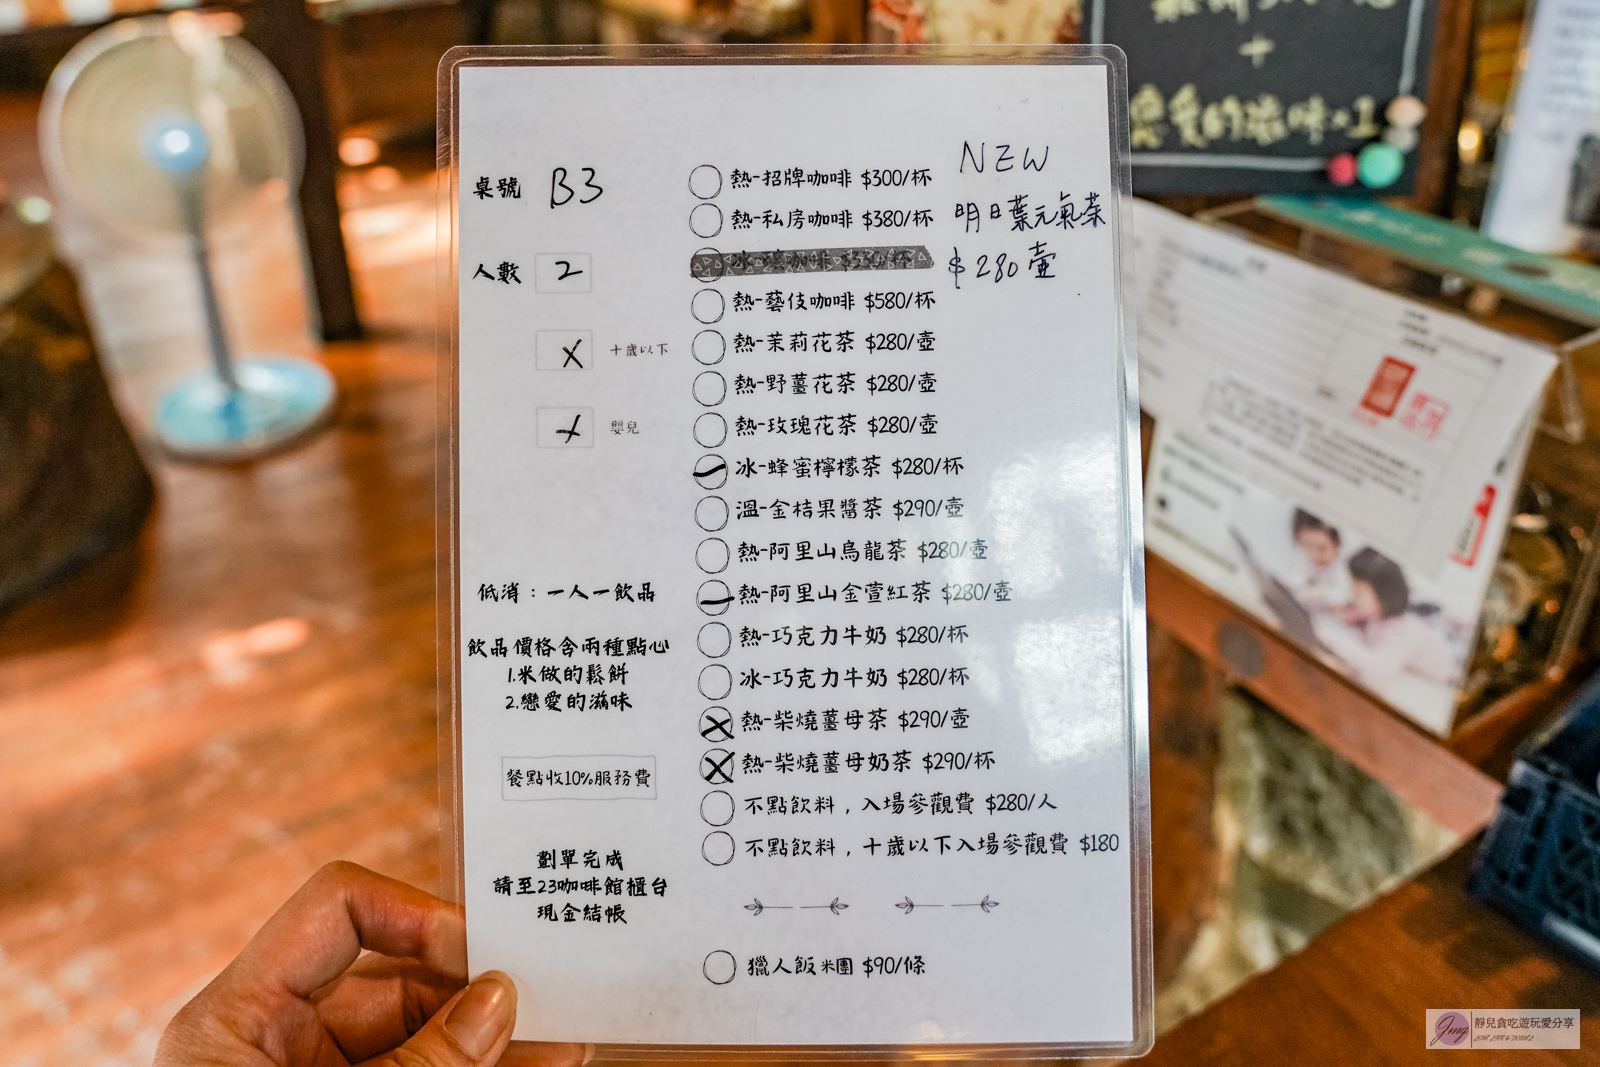 桌號 B3
人數 2
X 十歲以下
X 嬰兒
低消：一人一飲品
飲品價格含兩種點心
1.米做的鬆餅
2.戀愛的滋味
餐點收10%服務費
劃單完成
請至23咖啡館櫃台
現金結帳
熱-招牌咖啡 $300/杯
熱-私房咖啡 $380/杯
熱-藝伎咖啡 $580/杯
熱-茉莉花茶 $280/壺
熱-野薑花茶 $280/壺
熱-玫瑰花茶 $280/壺
冰-蜂蜜檸檬茶 $280/杯
溫-金桔果醬茶 $290/壺
熱-阿里山烏龍茶 $280/壺
熱-阿里山金萱紅茶 $280/壺
熱-巧克力牛奶 $280/杯
冰-巧克力牛奶 $280/杯
熱-柴燒薑母茶 $290/壺
熱-柴燒薑母奶茶 $290/杯
不點飲料，入場參觀費 $280/人
不點飲料，十歲以下入場參觀費 $180
獵人飯米團 $90/條
NEW
明日葉元氣茶
$280壺
+
戀愛的滋味x1
Jmg
靜兒貪吃遊玩愛分享